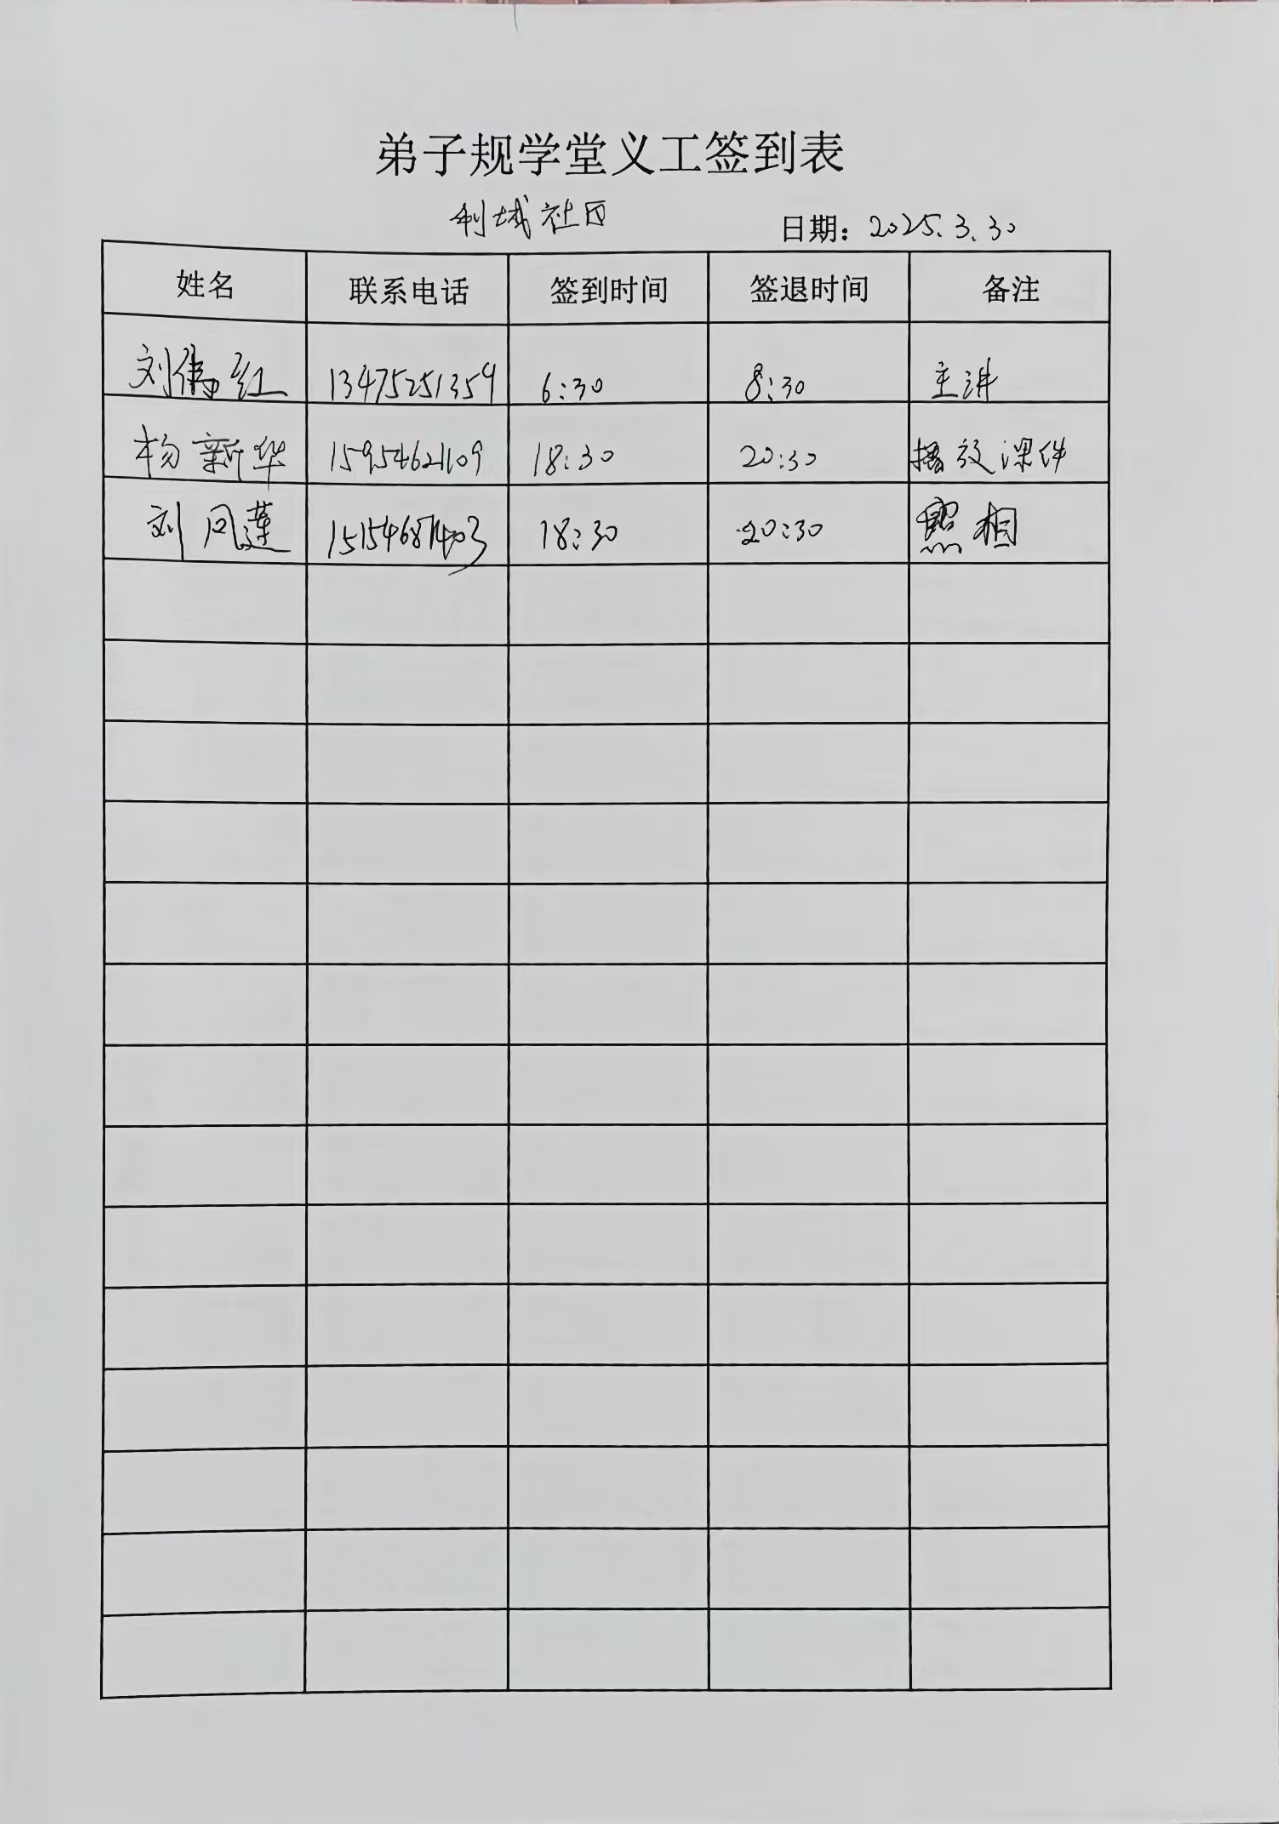 弟子规学堂义工签到表
利城社区 日期：2025.3.30
姓名 联系电话 签到时间 签退时间 备注
刘伟红 13475251359 6:30 8:30 主讲
杨新华 15954621109 18:30 20:30 播放课件
刘凤莲 18:30 20:30 照相